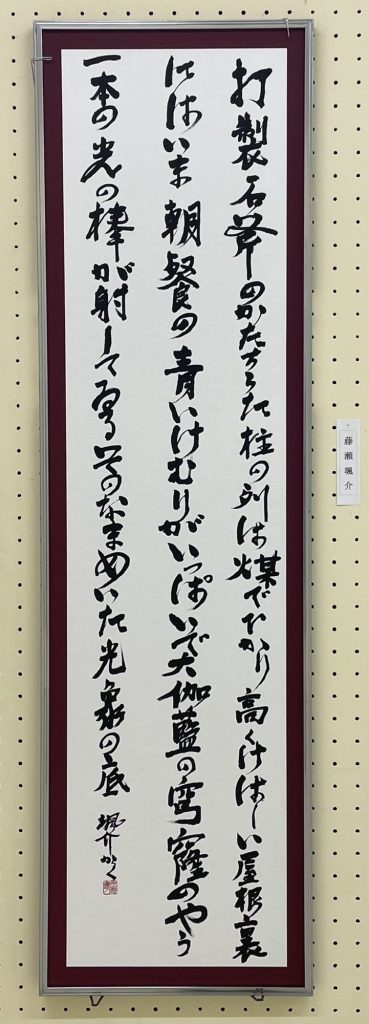 打製石斧のかたちした柱の列は煤でひかり高くけはしい屋根裏
にはいま朝餐の青いけむりがいっぱいで大伽藍の穹窿のやう
一本の光の棒が射してゐるそのなまめいた光象の底 颯介かく
藤瀬颯介